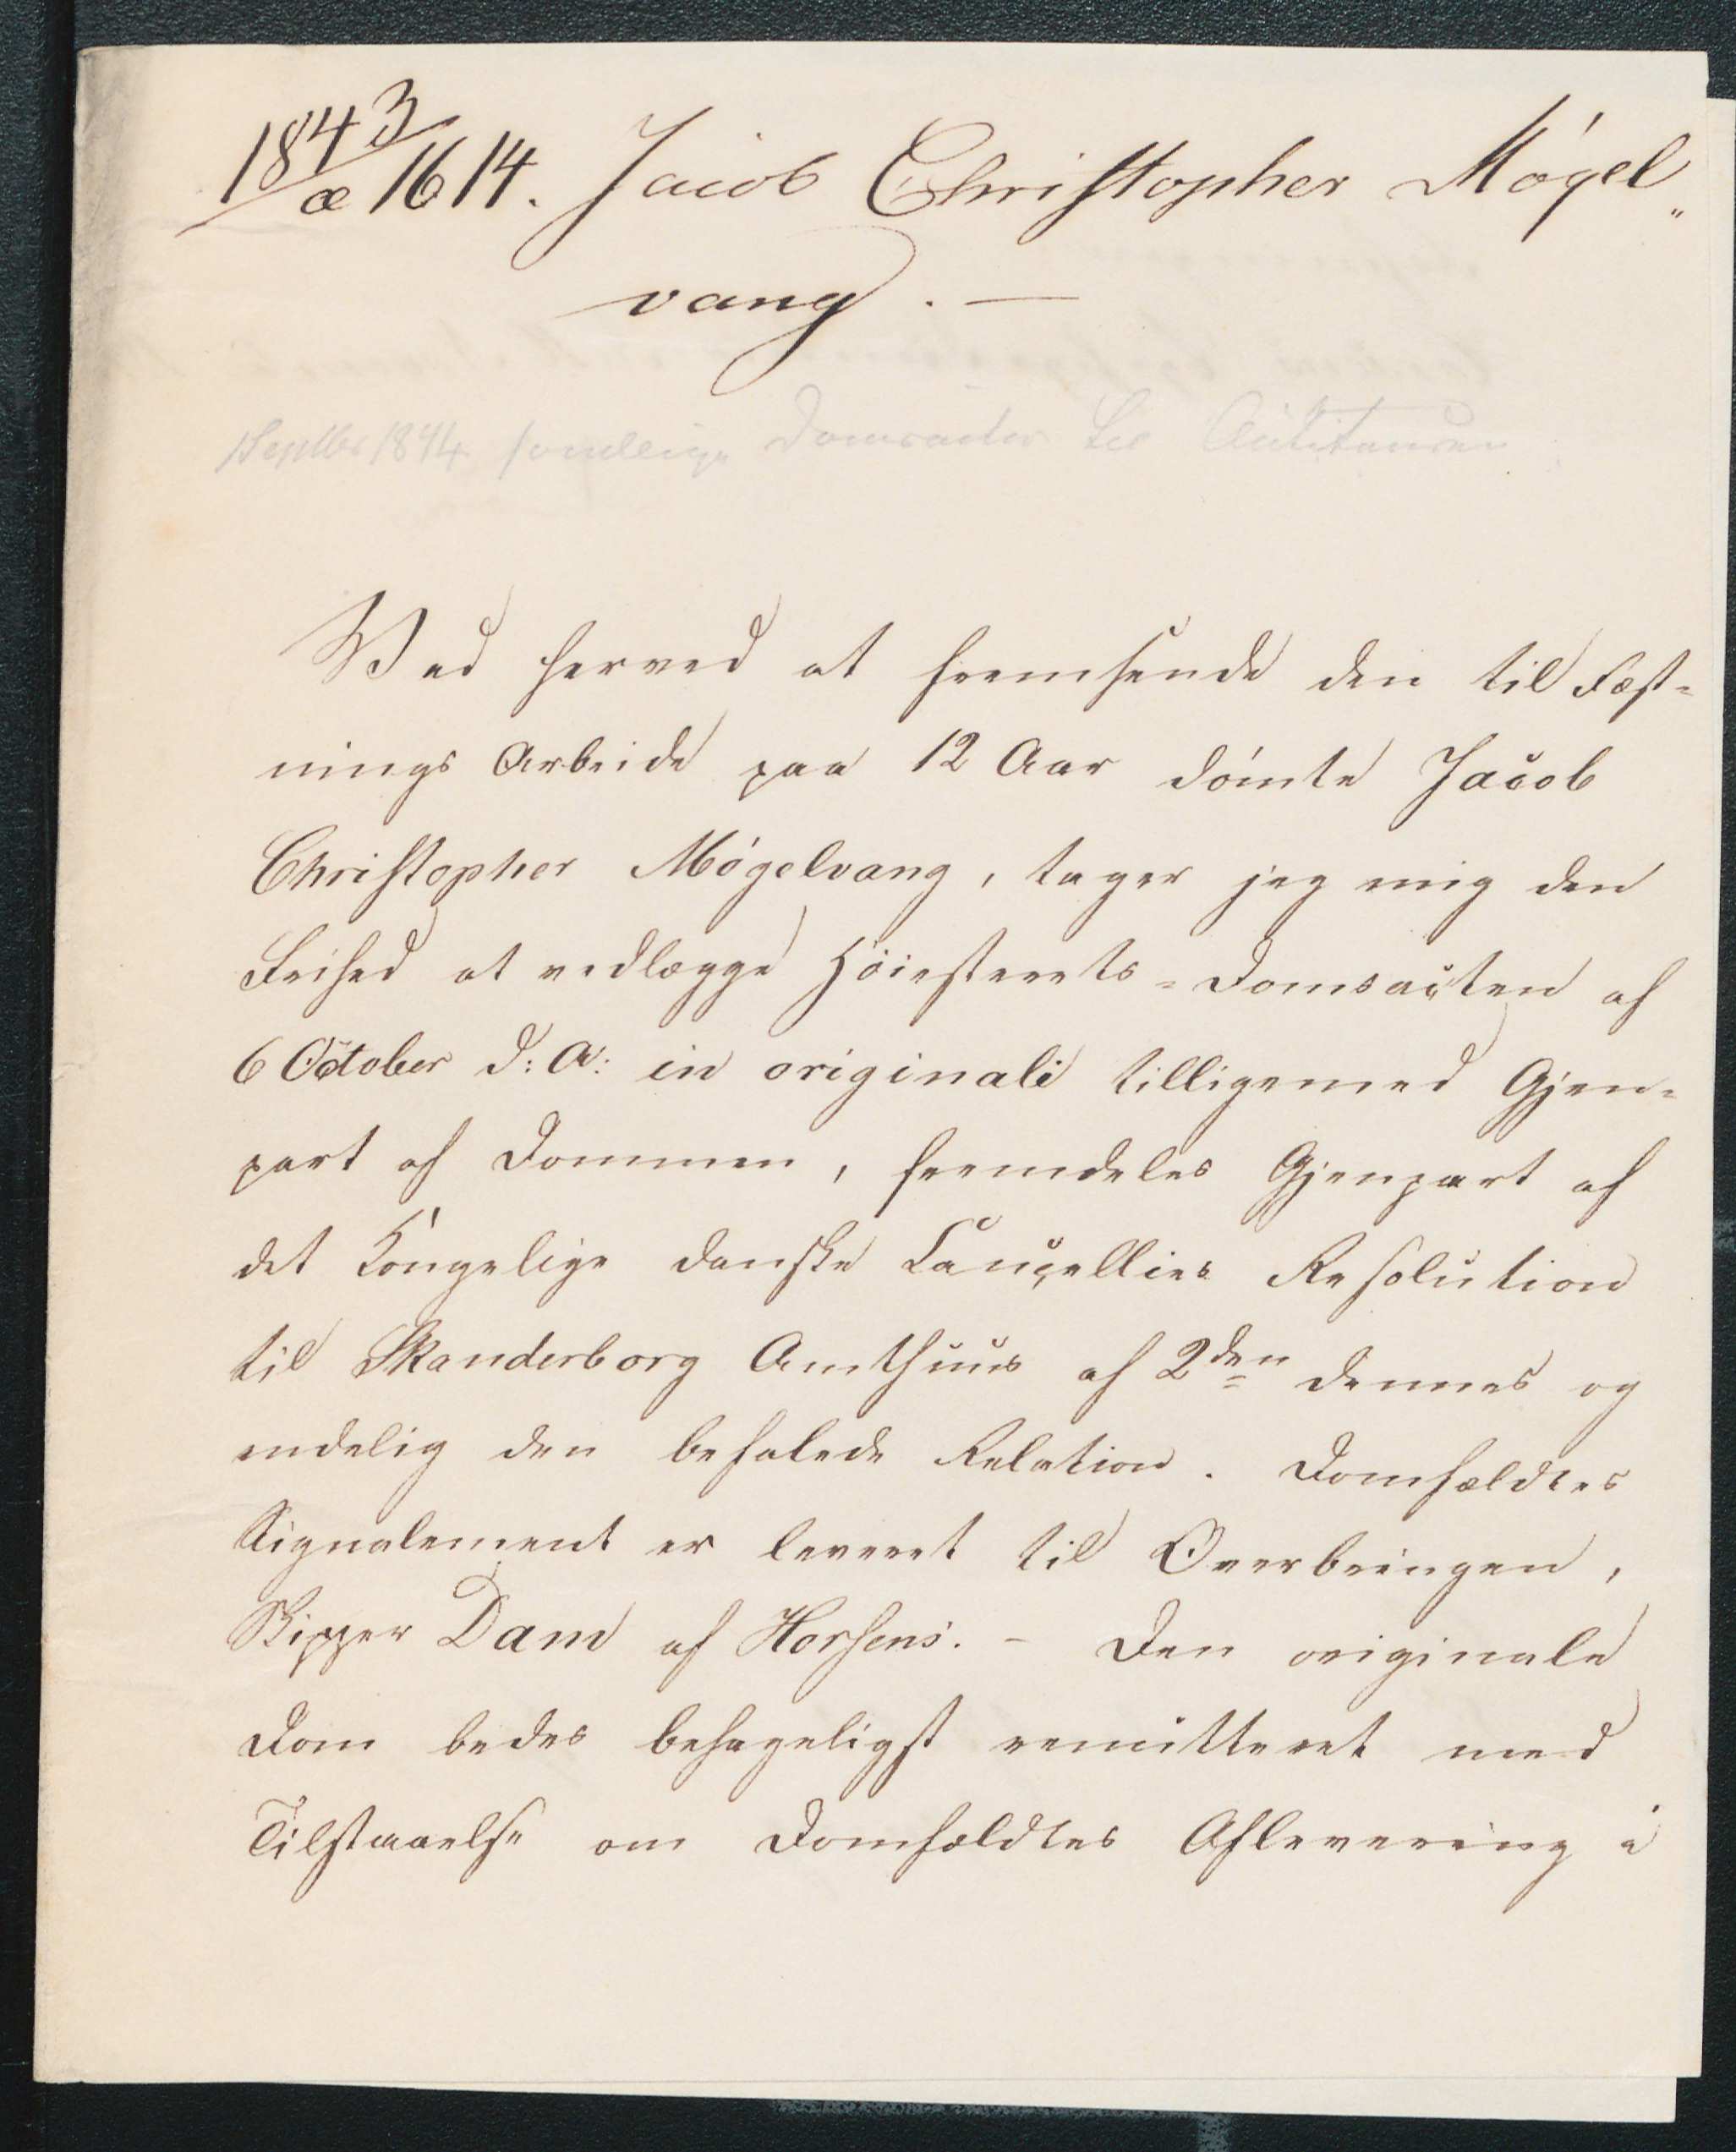 1843/æ 1614. Jacob Christopher Mögel„
vang. —
Septbr 1844 Domsacten
Ved herved at fremsende den til Fæst-
nings Arbeide paa 12 Aar dömte Jacob
Christopher Mögelvang, tager jeg mig den
Frihed at vedlægge Höiesterets-Domsacten af
6 October d: A: in originali tilligemed Gjen-
part af Dommen, fremdeles Gjenpart af
det Kongelige danske Cancellies Resolution
til Skanderborg Amthuus af 2den dennes og
endelig den befalede Relation. Domfældtes
Signalement er leveret til Overbringeren,
Skipper Dam af Horsens. - Den originale
Dom bedes behageligst remitteret med
Tilstaaelse om Domfældtes Aflevering i